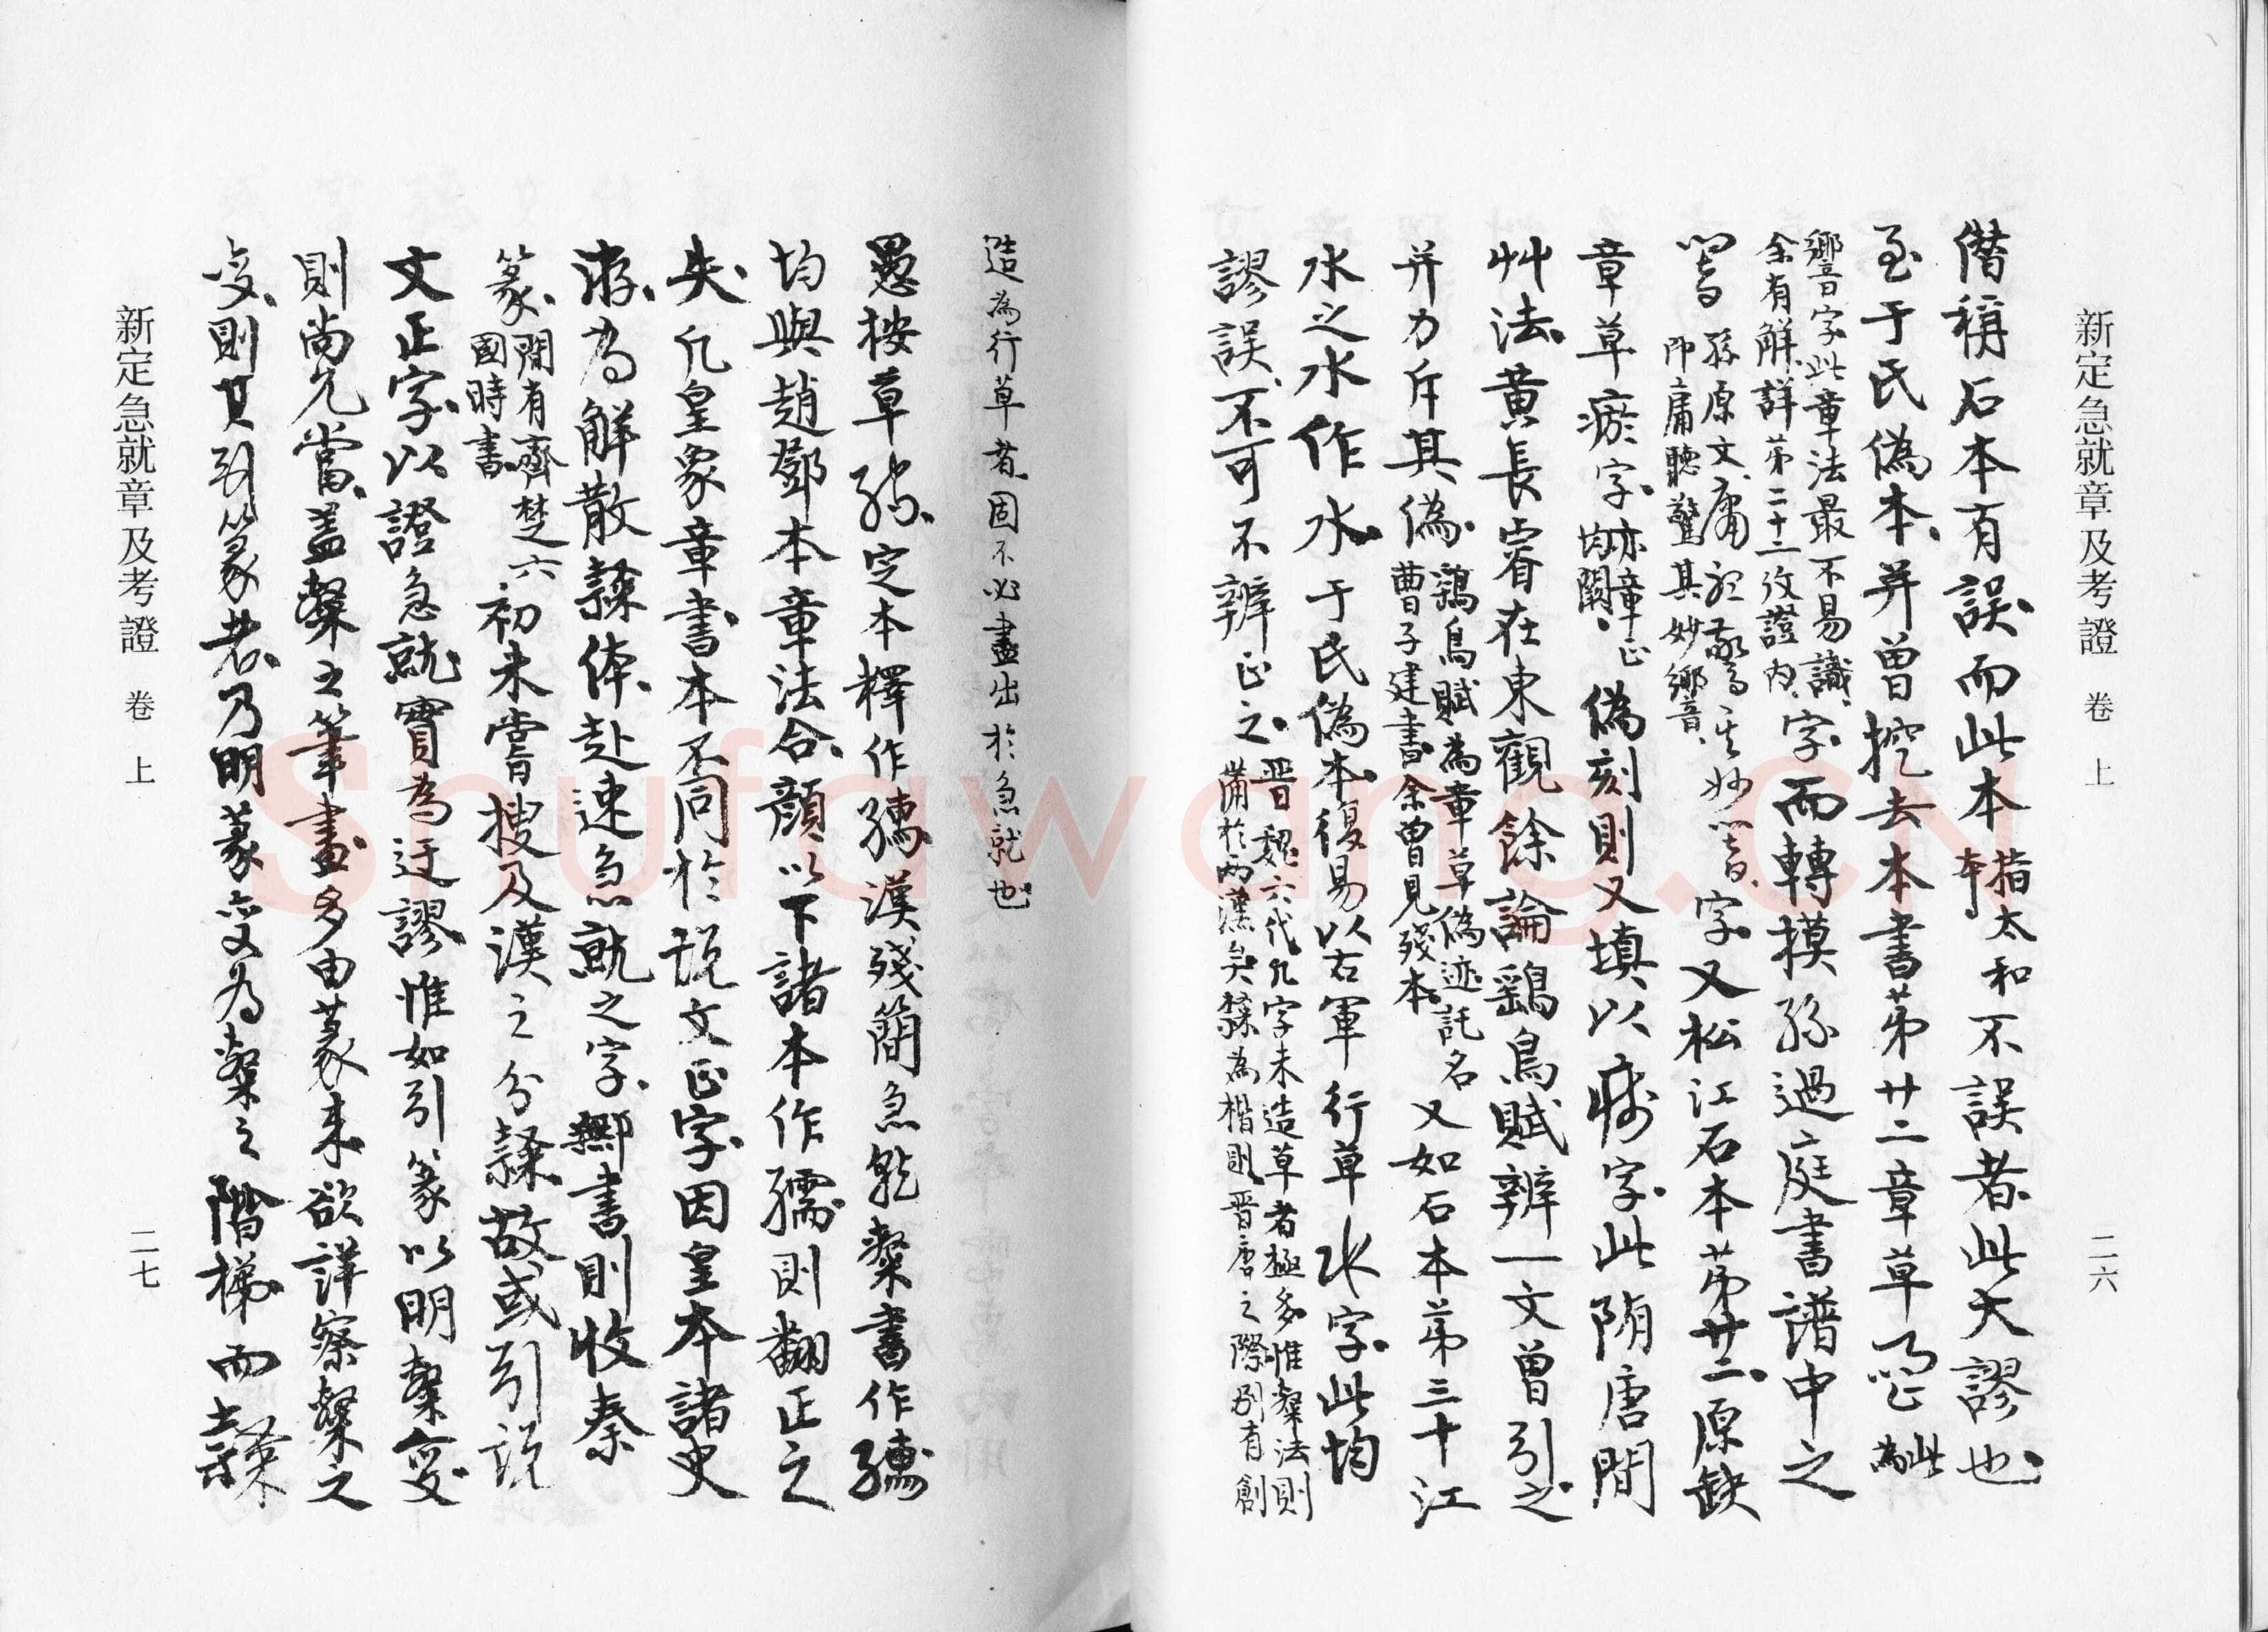 新定急就章及考證 卷上 二六
僭稱石本有誤而此本指太和本不誤者此大謬也
至于氏偽本并曾挖去本書第廿二章草 此為
響字此章法最不易識余有解詳第二十二攷證內字而轉摸孫過庭書譜中之
孫原文庸聽驚其妙響即庸聽驚其妙響字又松江石本第廿二原缺
章草瘀字亦章正均闕偽刻則又填以字此隋唐間
艸法黃長睿在東觀餘論鷂鳥賦辨一文曾引之
并力斥其偽鷂鳥賦為章草偽迹託名曹子建書余曾見殘本又如石本第三十江
水之水作水于氏偽本復易以右軍行草水字此均
謬誤不可不辨正之晋魏六代凡字未造草者極多惟槧法則備於兩漢矣隸為楷則晋唐之際別有創
造為行草者固不必盡出於急就也
愚按草 定本釋作 漢殘簡急就槧書作
均與趙鄧本章法合顏以下諸本作孺則翻正之
失凡皇象章書本不同於說文正字因皇本諸史
游為解散隸体赴速急就之字鄉書則收秦
篆間有齊楚六國時書初未嘗搜及漢之分隸故或引說
文正字以證急就實為迂謬惟如引篆以明槧變
則尚允當蓋槧之筆畫多由篆來欲詳察槧之
變則其引篆者乃明篆變為槧之階梯而隸
新定急就章及考證 卷上 二七
Shufawang.CN